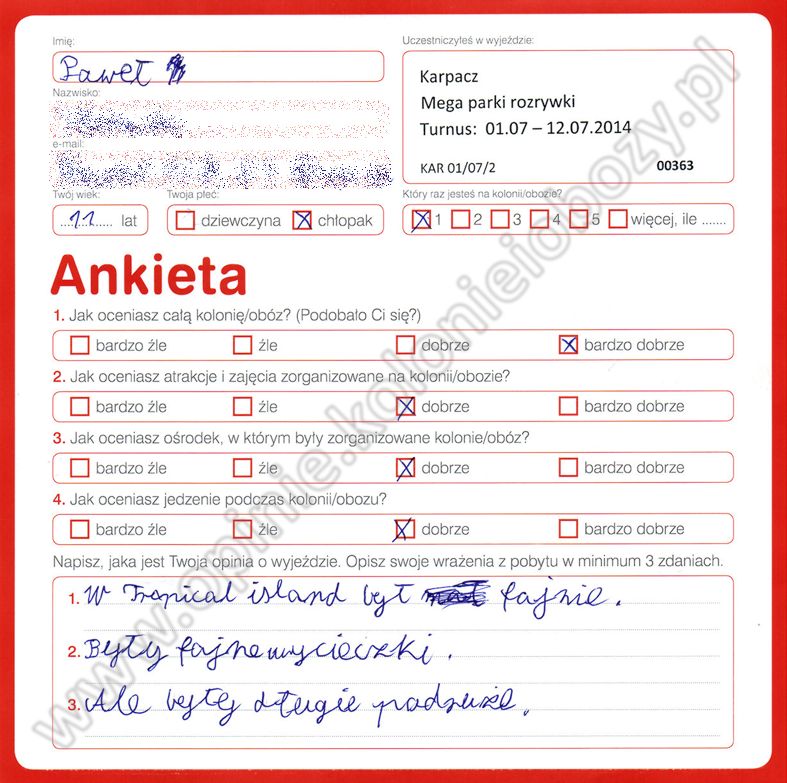 Imię:
Paweł
Uczestniczyłeś w wyjeździe:
Karpacz
Mega parki rozrywki
Turnus: 01.07 – 12.07.2014
KAR 01/07/2 00363
Nazwisko:
e-mail:
Twój wiek:
11 lat
Twoja płeć:
dziewczyna chłopak
Który raz jesteś na kolonii/obozie?
1 2 3 4 5 więcej, ile .......
Ankieta
1. Jak oceniasz całą kolonię/obóz? (Podobało Ci się?)
bardzo źle źle dobrze bardzo dobrze
2. Jak oceniasz atrakcje i zajęcia zorganizowane na kolonii/obozie?
bardzo źle źle dobrze bardzo dobrze
3. Jak oceniasz ośrodek, w którym były zorganizowane kolonie/obóz?
bardzo źle źle dobrze bardzo dobrze
4. Jak oceniasz jedzenie podczas kolonii/obozu?
bardzo źle źle dobrze bardzo dobrze
Napisz, jaka jest Twoja opinia o wyjeździe. Opisz swoje wrażenia z pobytu w minimum 3 zdaniach.
1. W Tropical island był fajnie.
2. Były fajne wycieczki.
3. Ale były długie podruże.
www.opinie.kolonieiobozy.pl